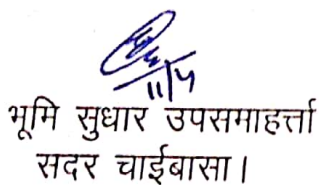 11/4
भूमि सुधार उपसमाहर्त्ता
सदर चाईबासा।